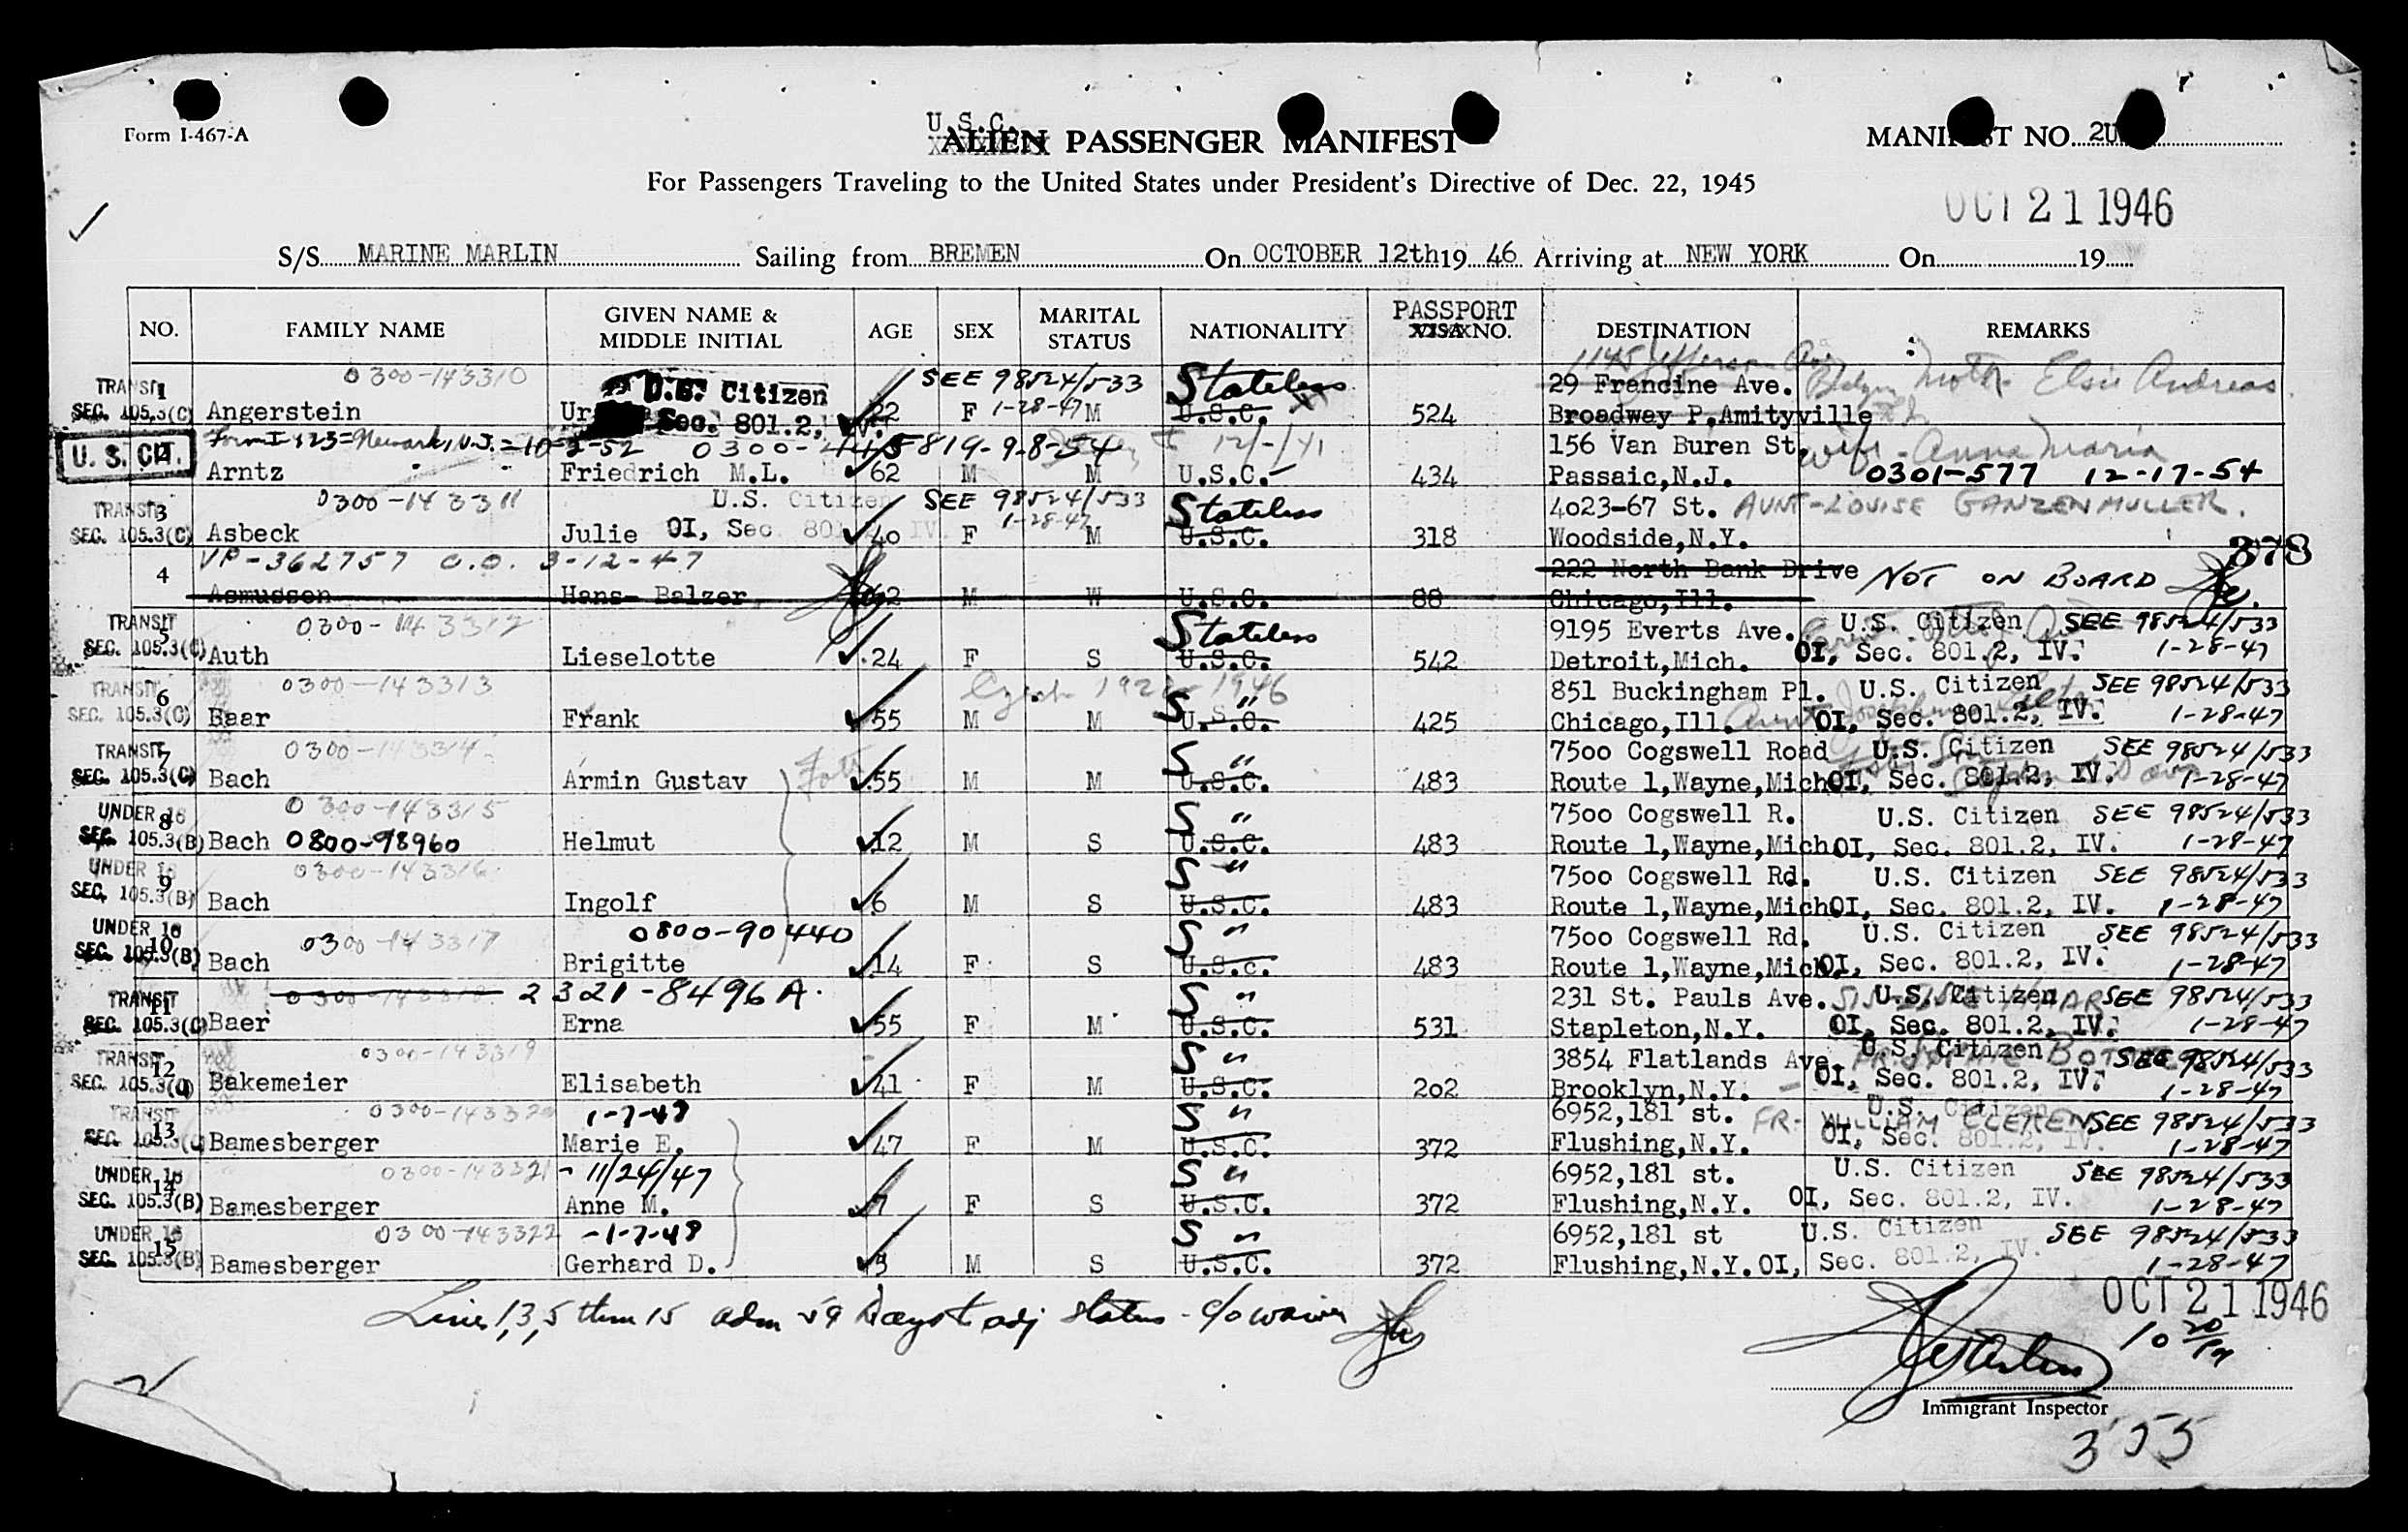 Form I-467-A
U.S.C.
ALIEN PASSENGER MANIFEST
MANIFEST NO. 2U
For Passengers Traveling to the United States under President's Directive of Dec. 22, 1945
OCT 21 1946
S/S MARINE MARLIN Sailing from BREMEN On OCTOBER 12th 19 46 Arriving at NEW YORK On 19
NO. FAMILY NAME GIVEN NAME & MIDDLE INITIAL AGE SEX MARITAL STATUS NATIONALITY PASSPORT VISA NO. DESTINATION REMARKS
0300-143310 U.S. Citizen SEE 98524/533 Stateless 1145 Jefferson Ave
TRANSIT 1 29 Francine Ave. Moth Elsie Andreas
SEC. 105.3(C) Angerstein Ur Sec. 801.2, 22 F 1-28-47 M U.S.C. 524 Broadway P,Amityville
Form I 123 = Newark, N.J. = 10-2-52 0300-445819-9-8-54 12/-/41 156 Van Buren St. wife - Anna Maria
U. S. CIT. 2 Arntz Friedrich M.L. 62 M M U.S.C. 434 Passaic,N.J. 0301-577 12-17-54
0300-143311 U.S. Citizen SEE 98524/533 Stateless 4023-67 St. AUNT-LOUISE GANZENMULLER.
TRANSIT 3
SEC. 105.3(C) Asbeck Julie OI, Sec 801.2, IV. 40 F 1-28-47 M U.S.C. 318 Woodside,N.Y.
378
VP-362757 C.O. 3-12-47 222 North Bank Drive NOT ON BOARD
4 Asmussen Hans- Balzer 62 M W U.S.C. 88 Chicago,Ill.
TRANSIT 5 0300-143312 Stateless 9195 Everts Ave. U.S. Citizen SEE 98524/533
SEC. 105.3(C) Auth Lieselotte 24 F S U.S.C. 542 Detroit,Mich. OI, Sec. 801.2, IV. 1-28-47
TRANSIT 6 0300-143313 Czech 1922-1946 851 Buckingham Pl. U.S. Citizen SEE 98524/533
SEC. 105.3(C) Baar Frank 55 M M S " U.S.C. 425 Chicago,Ill. OI, Sec. 801.2, IV. 1-28-47
TRANSIT 7 0300-143314 S " 7500 Cogswell Road U.S. Citizen SEE 98524/533
SEC. 105.3(C) Bach Armin Gustav 55 M M U.S.C. 483 Route 1,Wayne,Mich OI, Sec. 801.2, IV. 1-28-47
UNDER 16 8 0300-143315 S " 7500 Cogswell R. U.S. Citizen SEE 98524/533
SEC. 105.3(B) Bach 0800-98960 Helmut 12 M S U.S.C. 483 Route 1,Wayne,Mich OI, Sec. 801.2, IV. 1-28-47
UNDER 16 9 0300-143316 S " 7500 Cogswell Rd. U.S. Citizen SEE 98524/533
SEC. 105.3(B) Bach Ingolf 6 M S U.S.C. 483 Route 1,Wayne,Mich OI, Sec. 801.2, IV. 1-28-47
UNDER 16 10 0300-143317 0800-90440 S " 7500 Cogswell Rd. U.S. Citizen SEE 98524/533
SEC. 105.3(B) Bach Brigitte 14 F S U.S.C. 483 Route 1,Wayne,Mich. OI, Sec. 801.2, IV. 1-28-47
TRANSIT 11 0300-143318 2321-8496A. S " 231 St. Pauls Ave. U.S. Citizen SEE 98524/533
SEC. 105.3(C) Baer Erna 55 F M U.S.C. 531 Stapleton,N.Y. OI, Sec. 801.2, IV. 1-28-47
TRANSIT 12 0300-143319 S " 3854 Flatlands Ave. U.S. Citizen SEE 98524/533
SEC. 105.3(C) Bakemeier Elisabeth 41 F M U.S.C. 202 Brooklyn,N.Y. OI, Sec. 801.2, IV. 1-28-47
TRANSIT 13 0300-143320 1-7-48 S " 6952,181 st. FR- WILLIAM U.S. Citizen SEE 98524/533
SEC. 105.3(C) Bamesberger Marie E. 47 F M U.S.C. 372 Flushing,N.Y. OI, Sec. 801.2, IV. 1-28-47
UNDER 16 14 0300-143321 - 11/24/47 S " 6952,181 st. U.S. Citizen SEE 98524/533
SEC. 105.3(B) Bamesberger Anne M. 7 F S U.S.C. 372 Flushing,N.Y. OI, Sec. 801.2, IV. 1-28-47
UNDER 16 15 0300-143322 -1-7-48 S " 6952,181 st U.S. Citizen SEE 98524/533
SEC. 105.3(B) Bamesberger Gerhard D. 3 M S U.S.C. 372 Flushing,N.Y. OI, Sec. 801.2, IV. 1-28-47
Lines 1,3,5 thru 15 adm 59 Days t adj status - c/o waiver
OCT 21 1946
10 20/PM
Immigrant Inspector
355